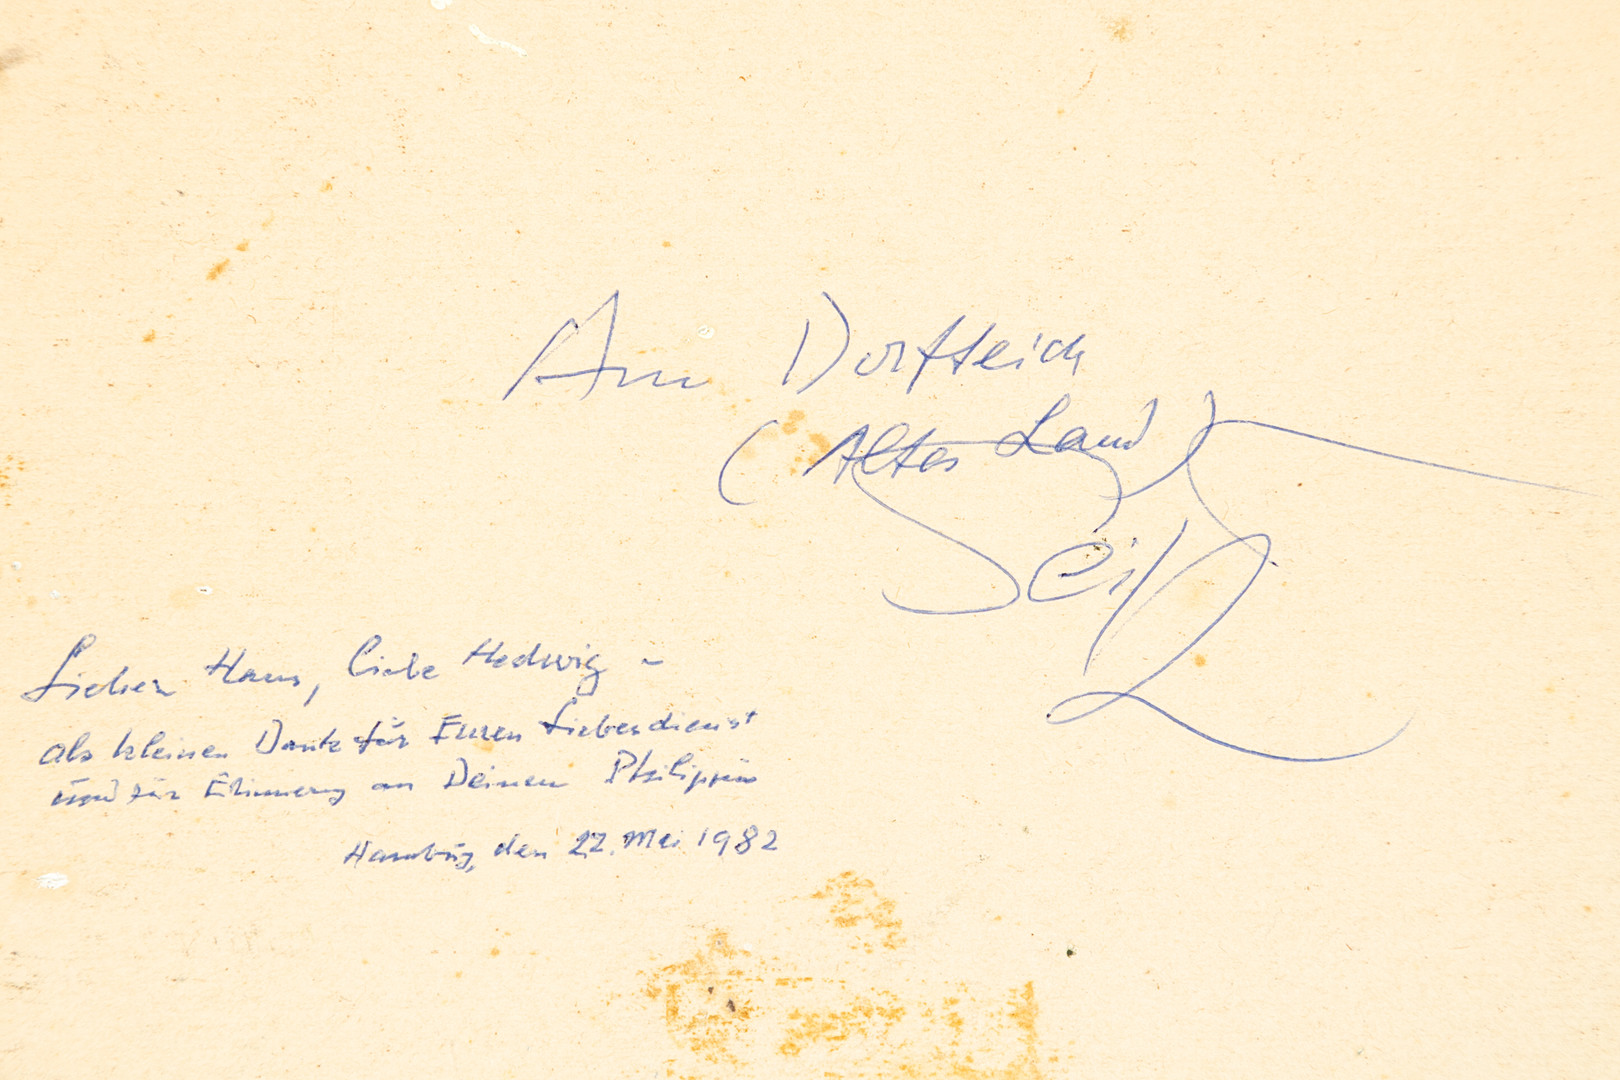 Am Dorfteich
(Altes Land)
Seitz
Lieber Hans, liebe Hedwig –
als kleinen Dank für Euren Liebesdienst
und zur Erinnerung an Deinen Philippin
Hamburg, den 22. Mai 1982